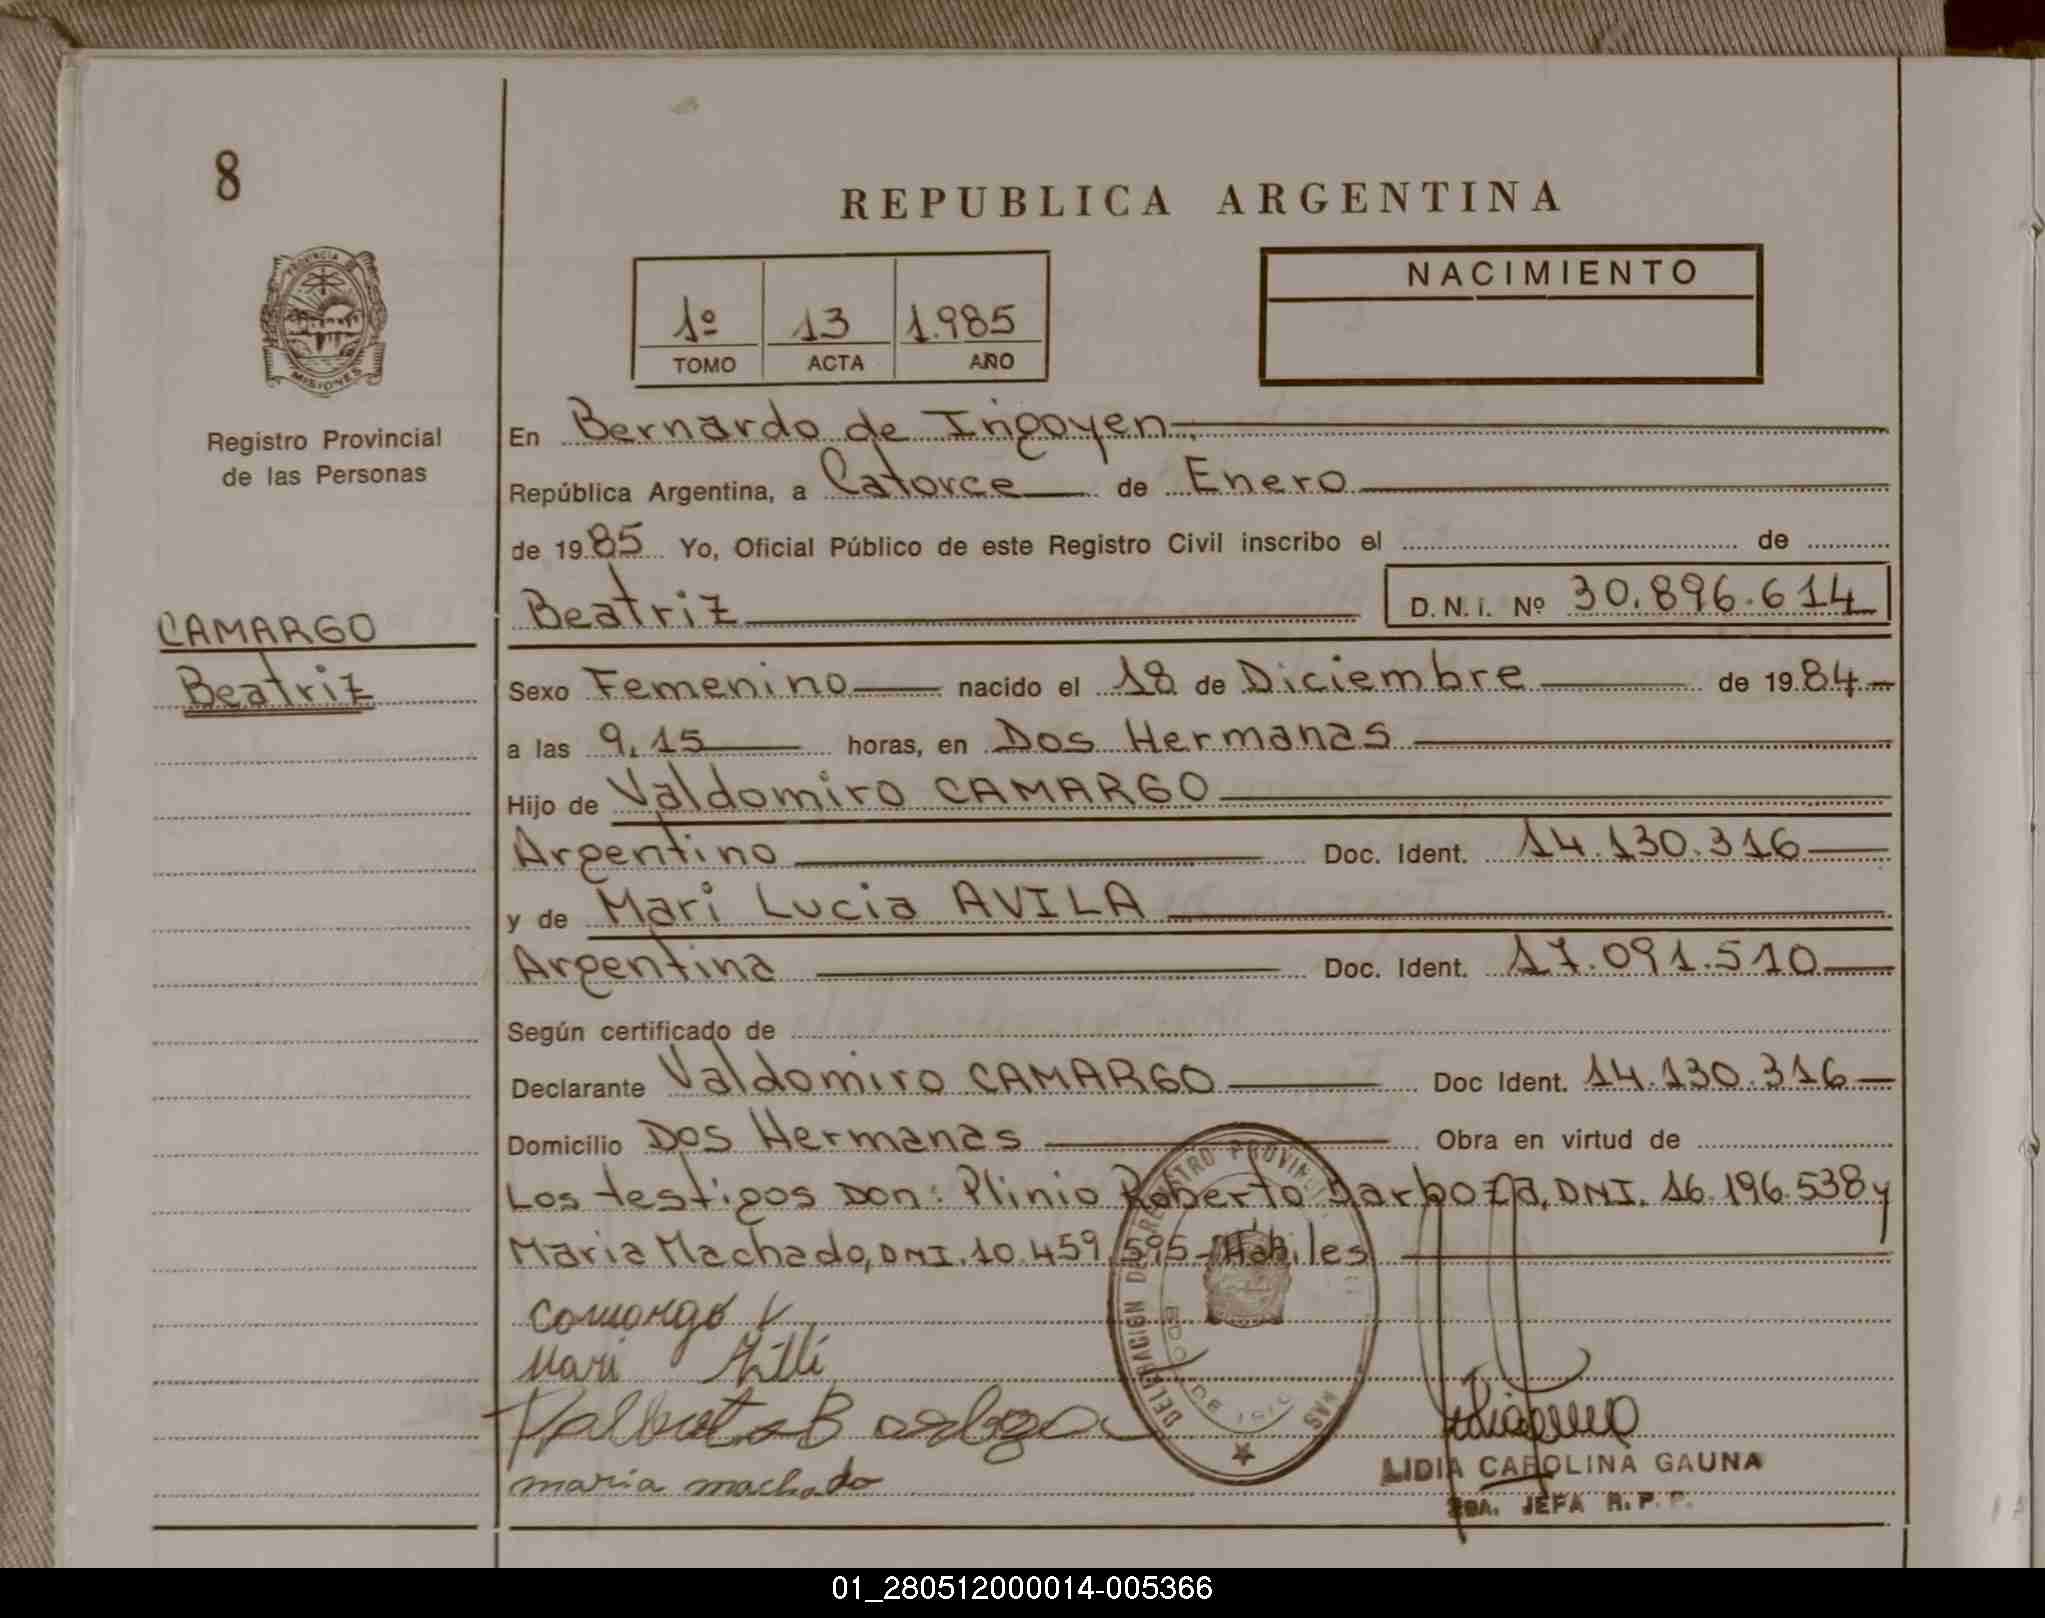 8
REPUBLICA ARGENTINA
PROVINCIA DE
MISIONES
NACIMIENTO
1º 13 1.985
TOMO ACTA AÑO
Registro Provincial
de las Personas
En Bernardo de Irigoyen
República Argentina, a Catorce de Enero
de 1985 Yo, Oficial Público de este Registro Civil inscribo el de
CAMARGO
Beatriz
Beatriz D.N.I. Nº 30.896.614
Sexo Femenino nacido el 18 de Diciembre de 1984
a las 9,15 horas, en Dos Hermanas
Hijo de Valdomiro CAMARGO
Argentino Doc. Ident. 14.130.316
y de Mari Lucia AVILA
Argentina Doc. Ident. 17.091.510
Según certificado de
Declarante Valdomiro CAMARGO Doc Ident. 14.130.316
Domicilio Dos Hermanas Obra en virtud de
Los testigos Don: Plinio Roberto Barboza, DNI. 16.196.538 y
Maria Machado, DNI. 10.459.595 - Habiles
Camargo V
Mari
maria machado
LIDIA CAROLINA GAUNA
JEFA R.P.P.
01_280512000014-005366